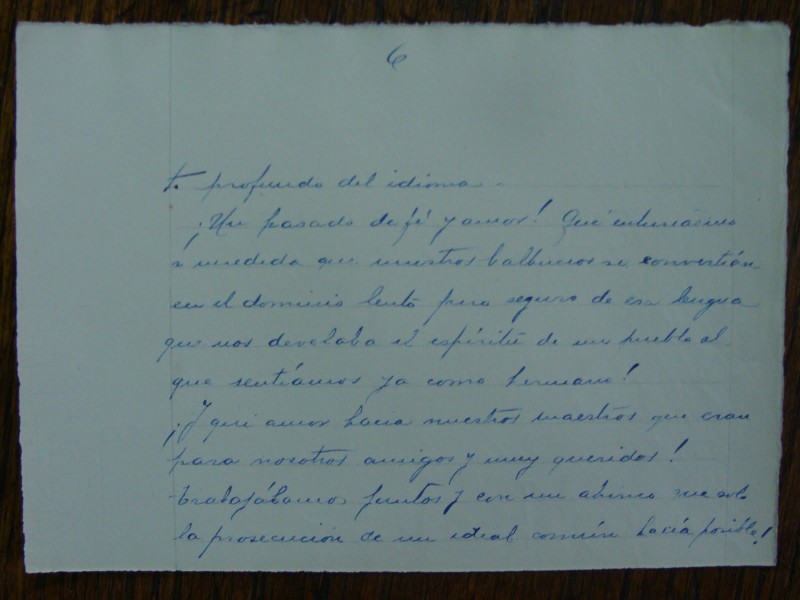 6
t. profundo del idioma.
¡Un pasado de fé y amor! Qué entusiasmo
a medida que nuestros balbuceos se convertían
en el dominio lento pero seguro de esa lengua
que nos develaba el espíritu de un pueblo al
que sentíamos ya como hermano!
¡Y qué amor hacia nuestros maestros que eran
para nosotros amigos y muy queridos!
trabajábamos juntos y con un ahinco que solo
la prosecución de un ideal común hacía posible!